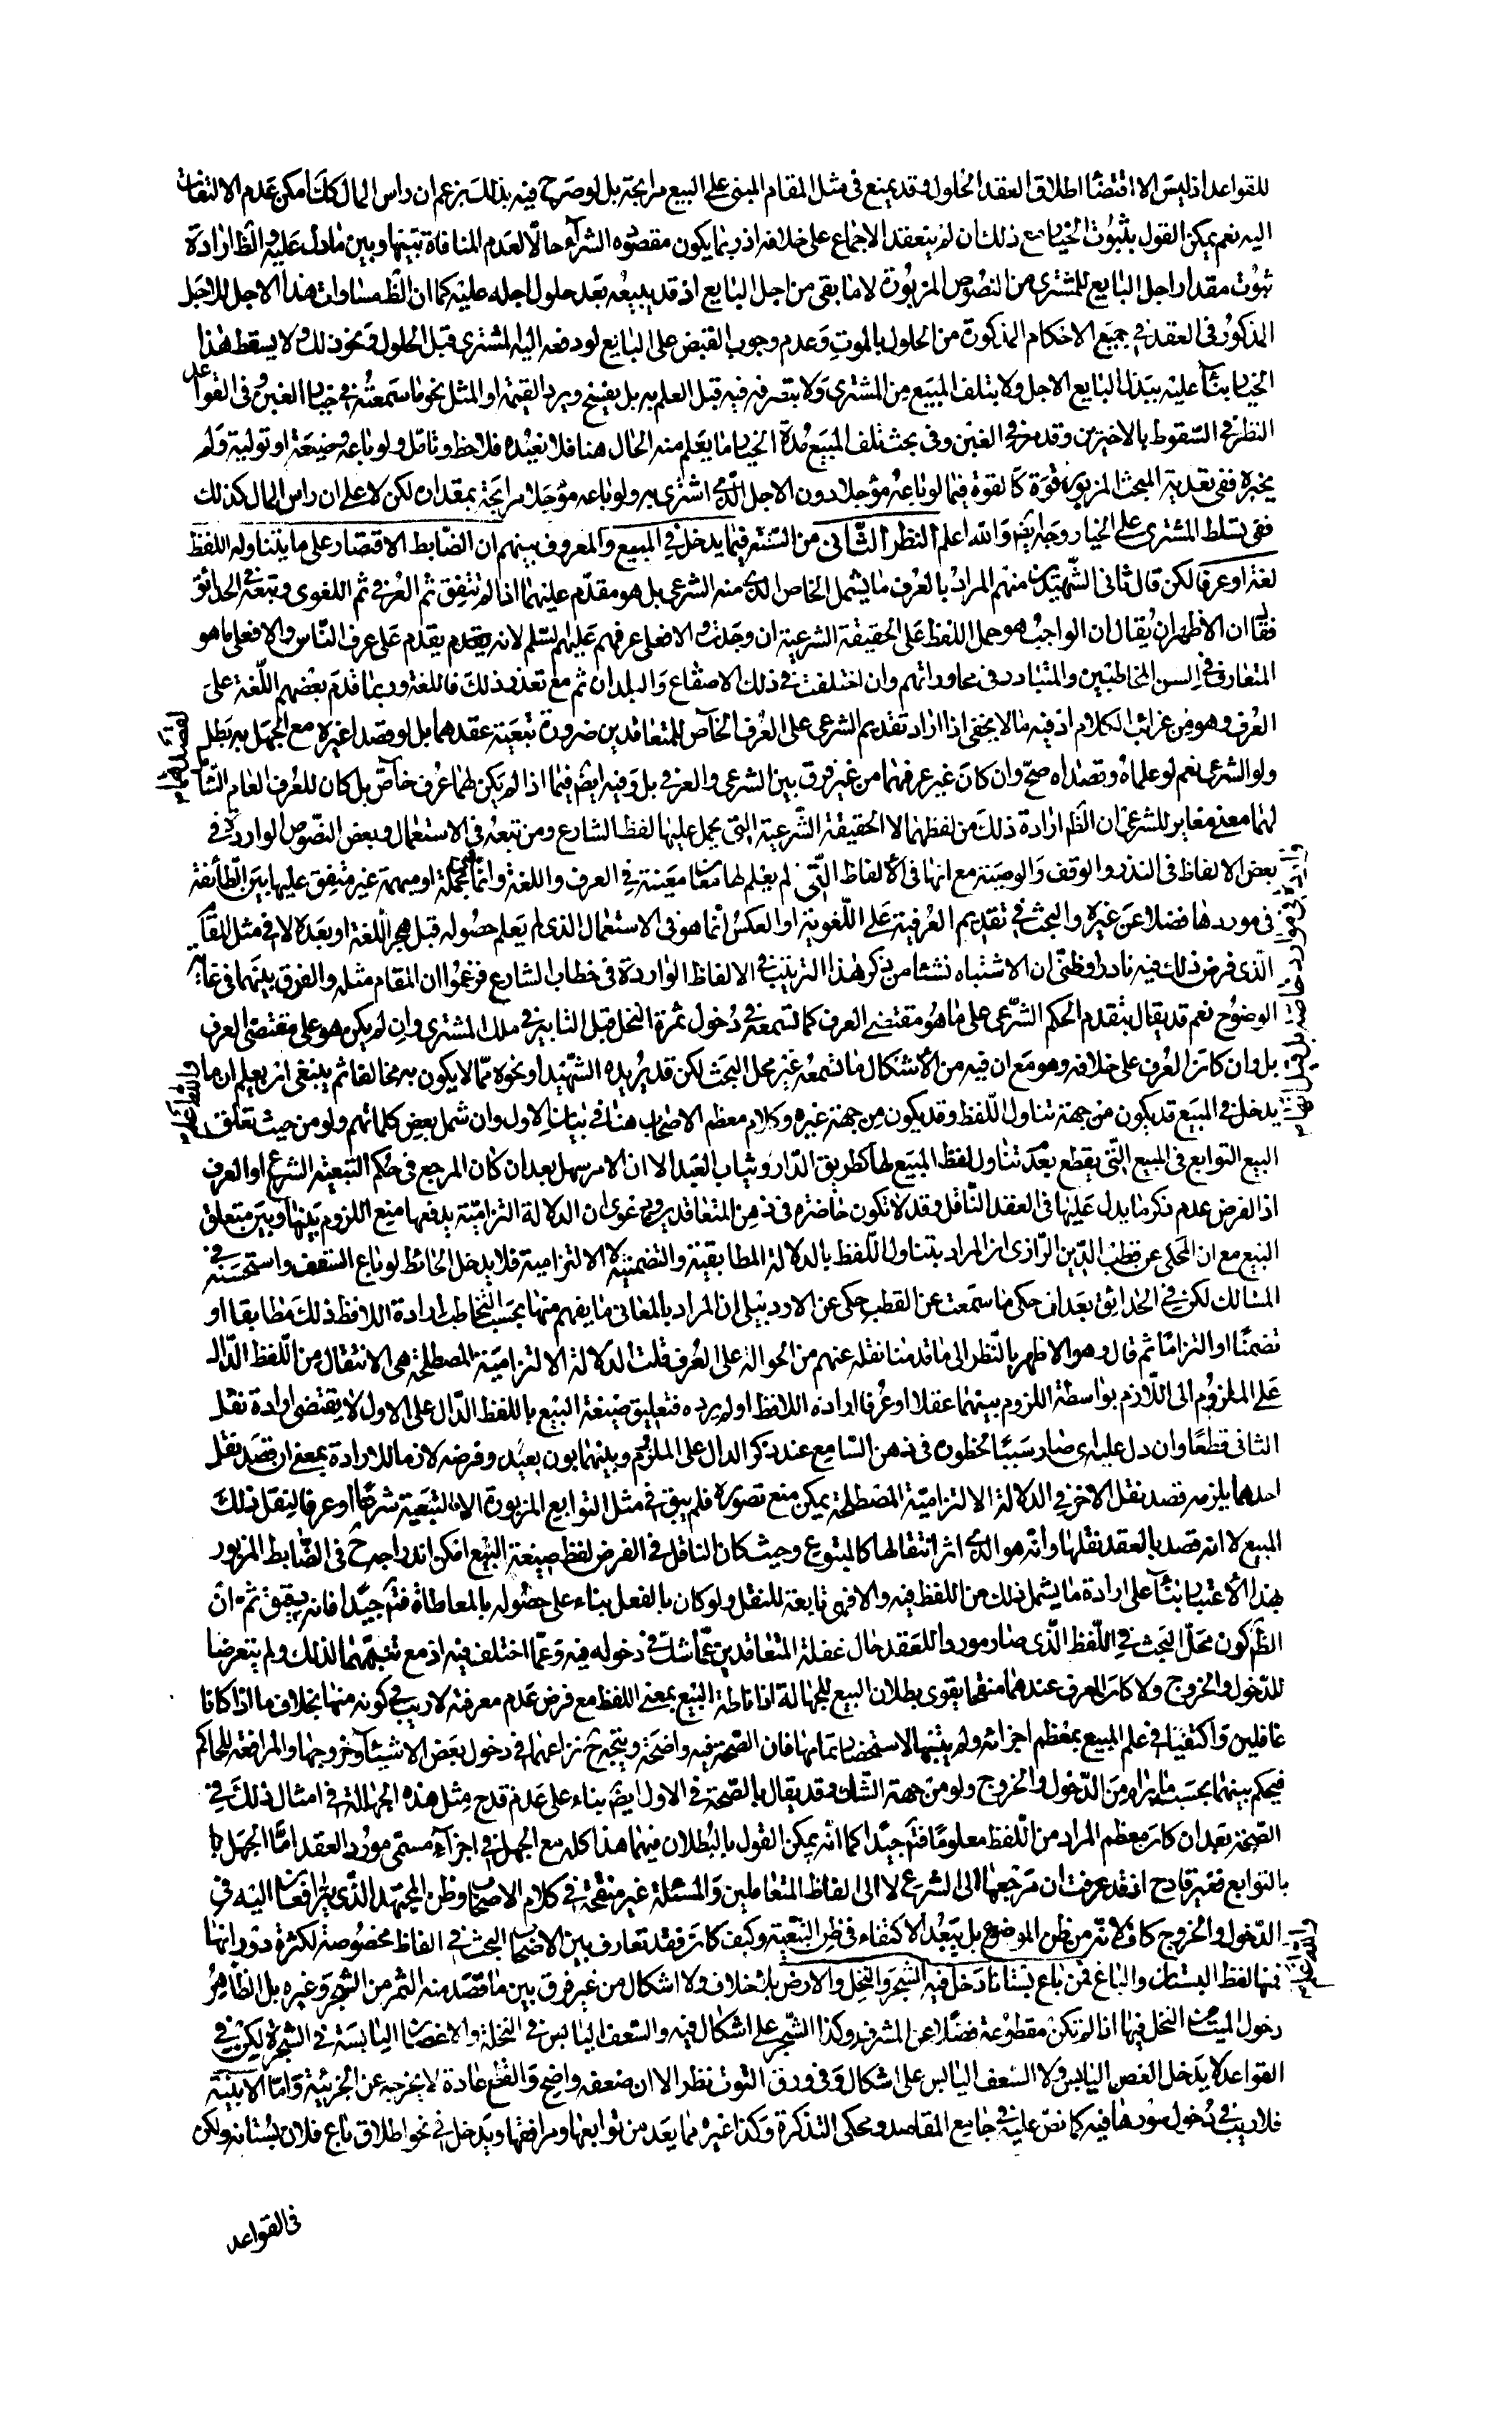 للقواعد اذ ليس الا اقتضا اطلاق العقد الحلول وقد يمنع فى مثل المقام المبنى على البيع مرابحة بل لو صرح فيه بذلك بزعم ان راس المال كك امكن عدم الالتفات
اليه نعم يمكن القول بثبوت الخيار مع ذلك ان لم ينعقد الاجماع على خلافه اذ ربما يكون مقصوده الشراء حالا لعدم المنافاة بينها وبين مادل عليه والظ ارادة
ثبوت مقدار اجل البايع للمشترى من النصوص المزبورة لا ما بقى من اجل البايع اذ قد يبيعه بعد حلول اجله عليه كما ان الظ مساوات هذا الاجل للاجل
المذكور فى العقد فى جميع الاحكام المذكورة من الحلول بالموت وعدم وجوب القبض على البايع لو دفعه اليه المشترى قبل الحلول ونحو ذلك ولا يسقط هذا
الخيار بنآء عليه ببذل البايع الاجل ولا بتلف المبيع من المشترى ولا بتصرفه فيه قبل العلم به بل يفسخ ويرد القيمة او المثل نحو ما سمعته فى خيار الغبن وفى القواعد
النظر فى السقوط بالاخيرين وقد مر فى الغبن وفى بحث تلف المبيع مدة الخيار ما يعلم منه الحال هنا فلا نعيده فلاحظ وتامل ولو باعه وضيعة او تولية ولم
يخبره ففى تعدية المبحث المزبور قوة كالقوة فيما لو باعه مؤجلا دون الاجل الذى اشترى به ولو باعه مؤجلا مرابحة بمقداره لكن لا على ان راس المال كذلك
ففى تسلط المشترى على الخيار وجه ايضا والله اعلم النظر الثانى من الستة فيما يدخل فى المبيع والمعروف بينهم ان الضابط الاقتصار على ما يتناوله اللفظ
لغة او عرفا لكن قال ثانى الشهيدين منهم المراد بالعرف ما يشمل الخاص الذى منه الشرعى بل هو مقدم عليهما اذا لم يتفق ثم العرفى ثم اللغوى وتبعه فى الحدائق
فقال ان الاظهر ان يقال ان الواجب هو حمل اللفظ على الحقيقة الشرعية ان وجدت والا فعلى عرفهم عليهم السلم لانه يقدم على عرف الناس والا فعلى ما هو
المتعارف فى السن المخاطبين والمتبادر فى محاوراتهم وان اختلفت فى ذلك الاصقاع والبلدان ثم مع تعذر ذلك فاللغة وربما قدم بعضهم اللغة على
العرف وهو من غرائب الكلام اذ فيه ما لا يخفى اذا اراد تقديم الشرعى على العرف الخاص للمتعاقدين ضرورة تبعية عقدهما بل لو قصدا غيره مع الجهل به بطل
ولو الشرعى نعم لو علماه وقصداه صح وان كان غير عرفهما من غير فرق بين الشرعى والعرفى بل وفيه ايضا فيما اذا لم يكن لهما عرف خاص بل كان للعرف العام الشامل
لهما معنى مغاير للشرعى ان الظ ارادة ذلك من لفظهما لا الحقيقة الشرعية التى يحمل عليها لفظ الشارع ومن تبعه فى الاستعمال وبعض النصوص الواردة فى
بعض الالفاظ فى النذر والوقف والوصية مع انها فى الالفاظ التى لم يعلم لها معان معينة فى العرف واللغة وانما هى مجملة او مبهمة غير متفق عليها بين الطائفة
فى موردها فضلا عن غيره والبحث فى تقديم العرفية على اللغوية او العكس انما هو فى الاستعمال الذى لم يعلم حصوله قبل هجر اللغة او بعده لا فى مثل المقام
الذى فرض ذلك فيه نادر او ظنى ان الاشتباه نشئا من ذكر هذا الترتيب فى الالفاظ الواردة فى خطاب الشارع فزعموا ان المقام مثله والفرق بينهما فى غاية
الوضوح نعم قد يقال بتقدم الحكم الشرعى على ما هو مقتضى العرف كما تسمعه فى دخول ثمرة النخل قبل التابير فى ملك المشترى وان لم يكن هو على مقتضى العرف
بل وان كان العرف على خلافه وهو مع ان فيه من الاشكال ما تسمعه غير محل البحث لكن قد يريده الشهيد او نحوه مما لا يكون به مخالفا ثم ينبغى ان يعلم ان ما
يدخل فى المبيع قد يكون من جهة تناول اللفظ وقد يكون من جهة غيره وكلام معظم الاصحاب هنا فى بيان الاول وان شمل بعض كلماتهم ولو من حيث تعلق
البيع التوابع فى المبيع التى يقطع بعدم تناول لفظ المبيع لها كطريق الدار وثياب العبد الا ان الامر سهل بعد ان كان المرجع فى حكم التبعية الشرع او العرف
اذ الفرض عدم ذكر ما يدل عليها فى العقد الناقل وقد لا تكون حاضرة فى ذهن المتعاقدين ودعوى ان الدلالة التزامية يدفعها منع اللزوم بينها وبين متعلق
البيع مع ان المحكى عن قطب الدين الرازى ان المراد بتناول اللفظ بالدلالة المطابقية والتضمنية لا الالتزامية فلا يدخل الحائط لو باع السقف واستحسنه فى
المسالك لكن فى الحدائق بعد ان حكى ما سمعت عن القطب حكى عن الاردبيلى ان المراد بالمعانى ما يفهم منها بحسب التخاطب ارادة اللافظ ذلك مطابقا او
تضمنا او التزاما ثم قال وهو الاظهر بالنظر الى ما قدمنا نقله عنهم من الحوالة على العرف قلت الدلالة الالتزامية المصطلحة هى الانتقال من اللفظ الدال
على الملزوم الى اللازم بواسطة اللزوم بينهما عقلا او عرفا اراده اللافظ او لم يرده فتعليق صيغة البيع باللفظ الدال على الاول لا يقتضى ارادة نقل
الثانى قطعا وان دل عليه اى صار سببا لخطوره فى ذهن السامع عند ذكر الدال على الملزوم وبينهما بون بعيد وفرضه لازما للارادة بمعنى ان قصد نقل
احدهما يلزمه قصد نقل الاخر فى الدلالة الالتزامية المصطلحة يمكن منع تصوره فلم يبق فى مثل التوابع المزبورة الا التبعية شرعا او عرفا لنقل ذلك
المبيع لا انه قصد بالعقد نقلها وانه هو الذى اثر انتقالها كالمتبوع وحيث كان الناقل فى الفرض لفظ صيغة البيع امكن اندراجه ح فى الضابط المزبور
بهذا الاعتبار بنآء على ارادة ما يشمل ذلك من اللفظ فيه والا فهى تابعة للنقل ولو كان بالفعل بناء على حصوله بالمعاطاة فتم جيدا فانه دقيق ثم ان
الظ كون محل البحث فى اللفظ الذى صار موردا للعقد حال غفلة المتعاقدين عما شك فى دخوله فيه وعما اختلف فيه اذ مع تنبههما لذلك ولم يتعرضا
للدخول والخروج ولا كان العرف عندهما منقحا يقوى بطلان البيع للجهالة اذ اناطة البيع بمعنى اللفظ مع فرض عدم معرفته لا ريب فى كونه منها بخلاف ما اذا كانا
غافلين واكتفيا فى علم المبيع بمعظم اجزائه ولم يتنبها لاستحضار تمامها فان الصحة فيه واضحة ويتجه ح نزاعهما فى دخول بعض الاشيآء وخروجها والمرافعة للحاكم
فيحكم بينهما بحسب ما يراه من الدخول والخروج ولو من جهة الشك وقد يقال بالصحة فى الاول ايضا بناء على عدم قدح مثل هذه الجهالة فى امثال ذلك فى
الصحة بعد ان كان معظم المراد من اللفظ معلوما فتم جيدا كما انه يمكن القول بالبطلان فيهما هذا كله مع الجهل فى اجزاء مسمى مورد العقد اما الجهل
بالتوابع فغير قادح اذ قد عرفت ان مرجعها الى الشرع لا الى الفاظ المتعاملين والمسئلة غير منقحة فى كلام الاصحاب وظن المجتهد الذى يترافعان اليه فى
الدخول والخروج كاف لانه من ظن الموضوع بل يتجه الاكتفاء فى ظن التبعية وكيف كان فقد تعارف بين الاصحاب البحث فى الفاظ مخصوصة لكثرة دورانها
فمنها لفظ البستان والباغ فمن باع بستانا دخل فيه الشجر والنخل والارض بلا خلاف ولا اشكال من غير فرق بين ما قصد منه الثمر من الشجر وغيره بل الظاهر
دخول الميت من النخل فيها اذا لم تكن مقطوعة فضلا عن المشرف وكذا الشجر على اشكال فيه والسعف اليابس فى النخلة والاغصان اليابسة فى الشجرة لكن فى
القواعد لا يدخل الغصن اليابس ولا السعف اليابس على اشكال وفى ورق التوت نظر الا ان ضعفه واضح والقطع عادة لا يخرجه عن الجزئية واما الابنية
فلا ريب فى دخول سورها فيه كما نص عليه فى جامع المقاصد ومحكى التذكرة وكذا غيره مما يعد من توابعها ومرافقها ويدخل فى نحو اطلاق باع فلان بستانه ولكن
فى القواعد